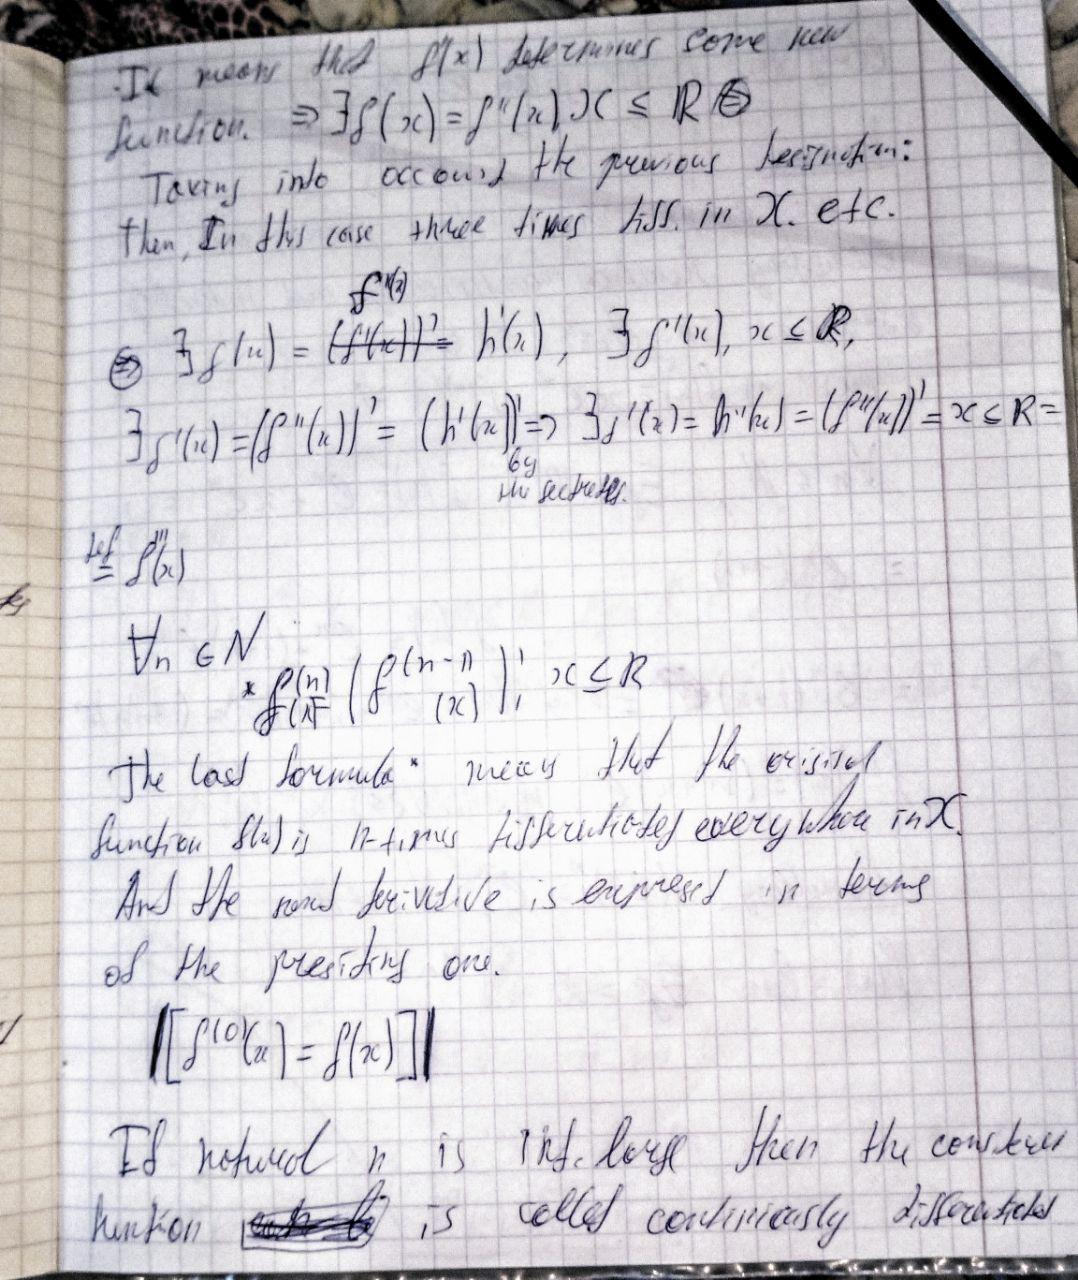 It means that f'(x) determines some new
function. ⇒ ∃g(x) = f''(x) x ≤ ℝ ⊜
Taking into account the previous
then, In this case three times diff. in X. etc.
f''(x)
⊜ ∃ g(x) = (f'(x))' = h'(x), ∃ g'(x), x ≤ ℝ,
∃ g'(x) = (f''(x))' = (h'(x))' ⇒ ∃ g'(x) = h''(x) = (f''(x))' = x ≤ ℝ =
by
the
def = f'''(x)
∀n ∈ N
* f(n)(x) = (f(n-1)(x))', x ≤ ℝ
The last formula * means that the original
function f(x) is n-times differentiated everywhere in X.
And the next derivative is expressed in terms
of the presiding one.
|[f(0)(x) = f(x)]|
If natural n is inf. large then the
function is called continiously differentiated